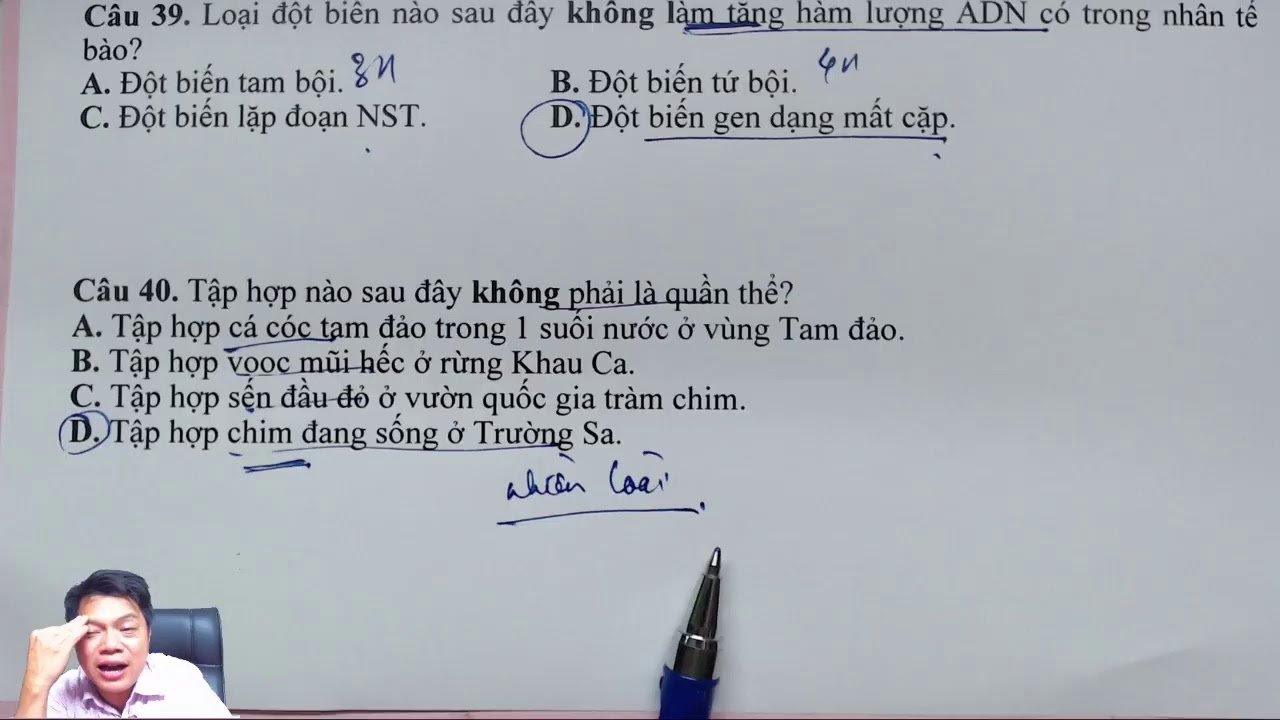 Câu 39. Loại đột biến nào sau đây không làm tăng hàm lượng ADN có trong nhân tế
bào?
A. Đột biến tam bội. 3n B. Đột biến tứ bội. 4n
C. Đột biến lặp đoạn NST. D. Đột biến gen dạng mất cặp.
Câu 40. Tập hợp nào sau đây không phải là quần thể?
A. Tập hợp cá cóc tam đảo trong 1 suối nước ở vùng Tam đảo.
B. Tập hợp vooc mũi hếc ở rừng Khau Ca.
C. Tập hợp sến đầu đỏ ở vườn quốc gia tràm chim.
D. Tập hợp chim đang sống ở Trường Sa.
nhiều loài